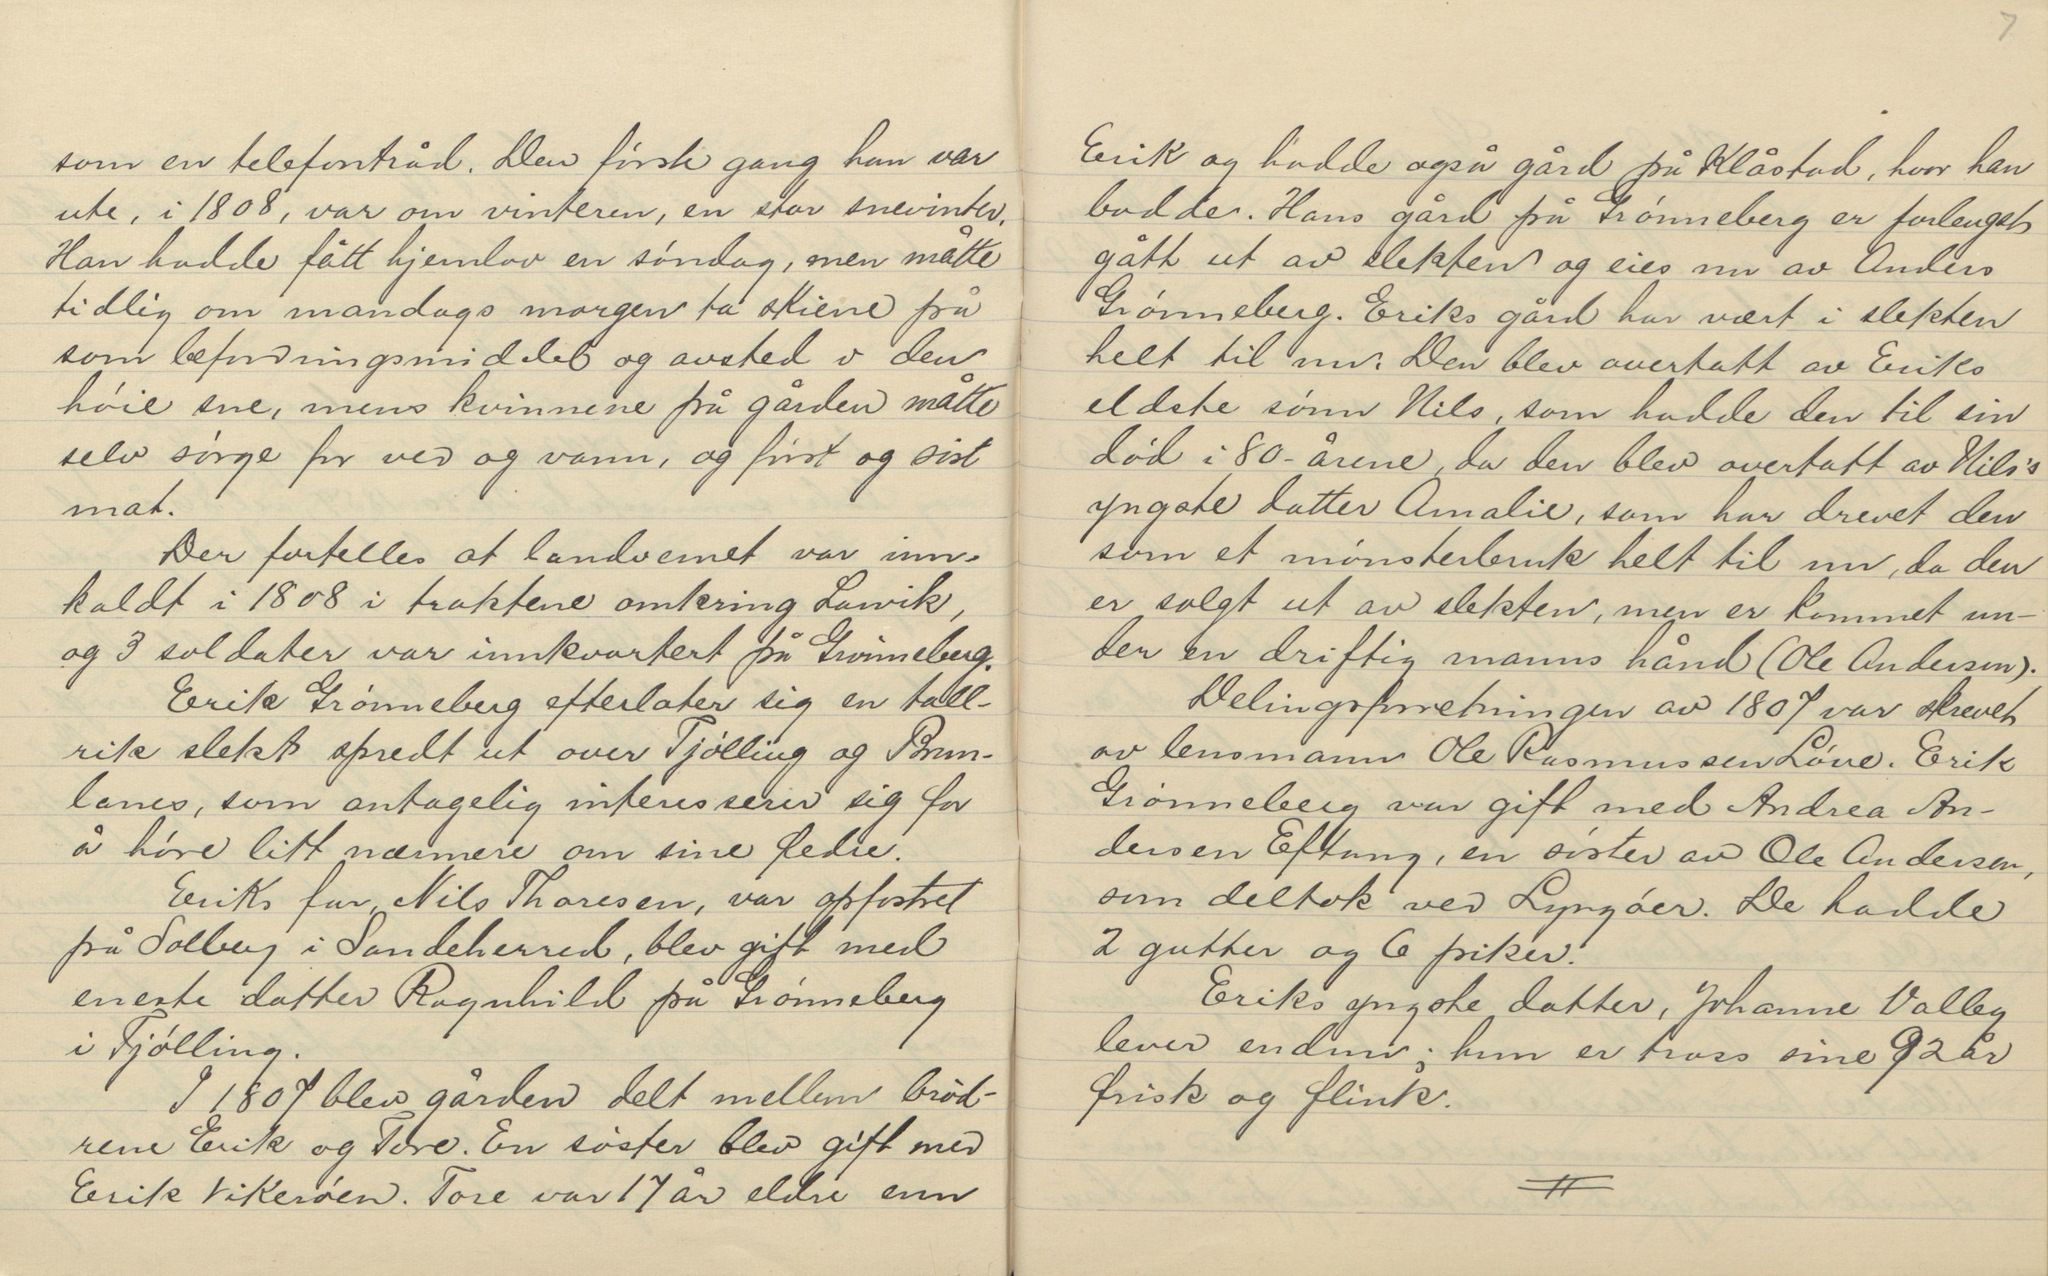 som en telefontråd. Den første gang han var
ute, i 1808, var om vinteren, en stor snevinter.
Han hadde fått hjemlov en søndag, men måtte
tidlig om mandags morgen ta skiene på
som befordringsmiddel og avsted i den
høie sne, mens kvinnene på gården måtte
selv sørge for ved og vann, og først og sist
mat.
Der fortelles at landvernet var inn-
kaldt i 1808 i traktene omkring Larvik,
og 3 soldater var innkvartert på Grønneberg.
Erik Grønneberg efterlater sig en tall-
rik slekt spredt ut over Tjølling og Brun-
lanes, som antagelig interesserer sig for
å høre litt nærmere om sine fedre.
Eriks far, Nils Thoresen, var opfostret
på Solberg i Sandeherred, blev gift med
eneste datter Ragnhild på Grønneberg
i Tjølling.
I 1807 blev gården delt mellem brød-
rene Erik og Tore. En søster blev gift med
Erik Vikerøen. Tore var 17 år eldre enn
7
Erik og hadde også gård på Klåstad, hvor han
bodde. Hans gård på Grønneberg er forlengst
gått ut av slekten og eies nu av Anders
Grønneberg. Eriks gård har vært i slekten
helt til nu. Den blev overtatt av Eriks
eldste sønn Nils, som hadde den til sin
død i 80-årene, da den blev overtatt av Nils's
yngste datter Amalie, som har drevet den
som et mønsterbruk helt til nu, da den
er solgt ut av slekten, men er kommet un-
der en driftig manns hånd (Ole Andersen).
Delingsforretningen av 1807 var skrevet
av lensmann Ole Rasmussen Løve. Erik
Grønneberg var gift med Andrea An-
dersen Eftang, en søster av Ole Andersen,
som deltok ved Lyngøer. De hadde
2 gutter og 6 piker.
Eriks yngste datter, Johanne Valby
lever endnu; hun er tross sine 92 år
frisk og flink.